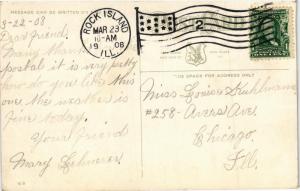 MESSAGE CAN BE WRITTEN
3-22-08
Dear friend,
postal it is very pretty
how do you like this
one the weather is
fine today.
Your friend
Mary
ROCK ISLAND
ILL.
MAR 23
10-AM
1908
2
THIS SPACE FOR ADDRESS ONLY
Miss Louise
#258- Avers Ave.
Chicago
Ill.